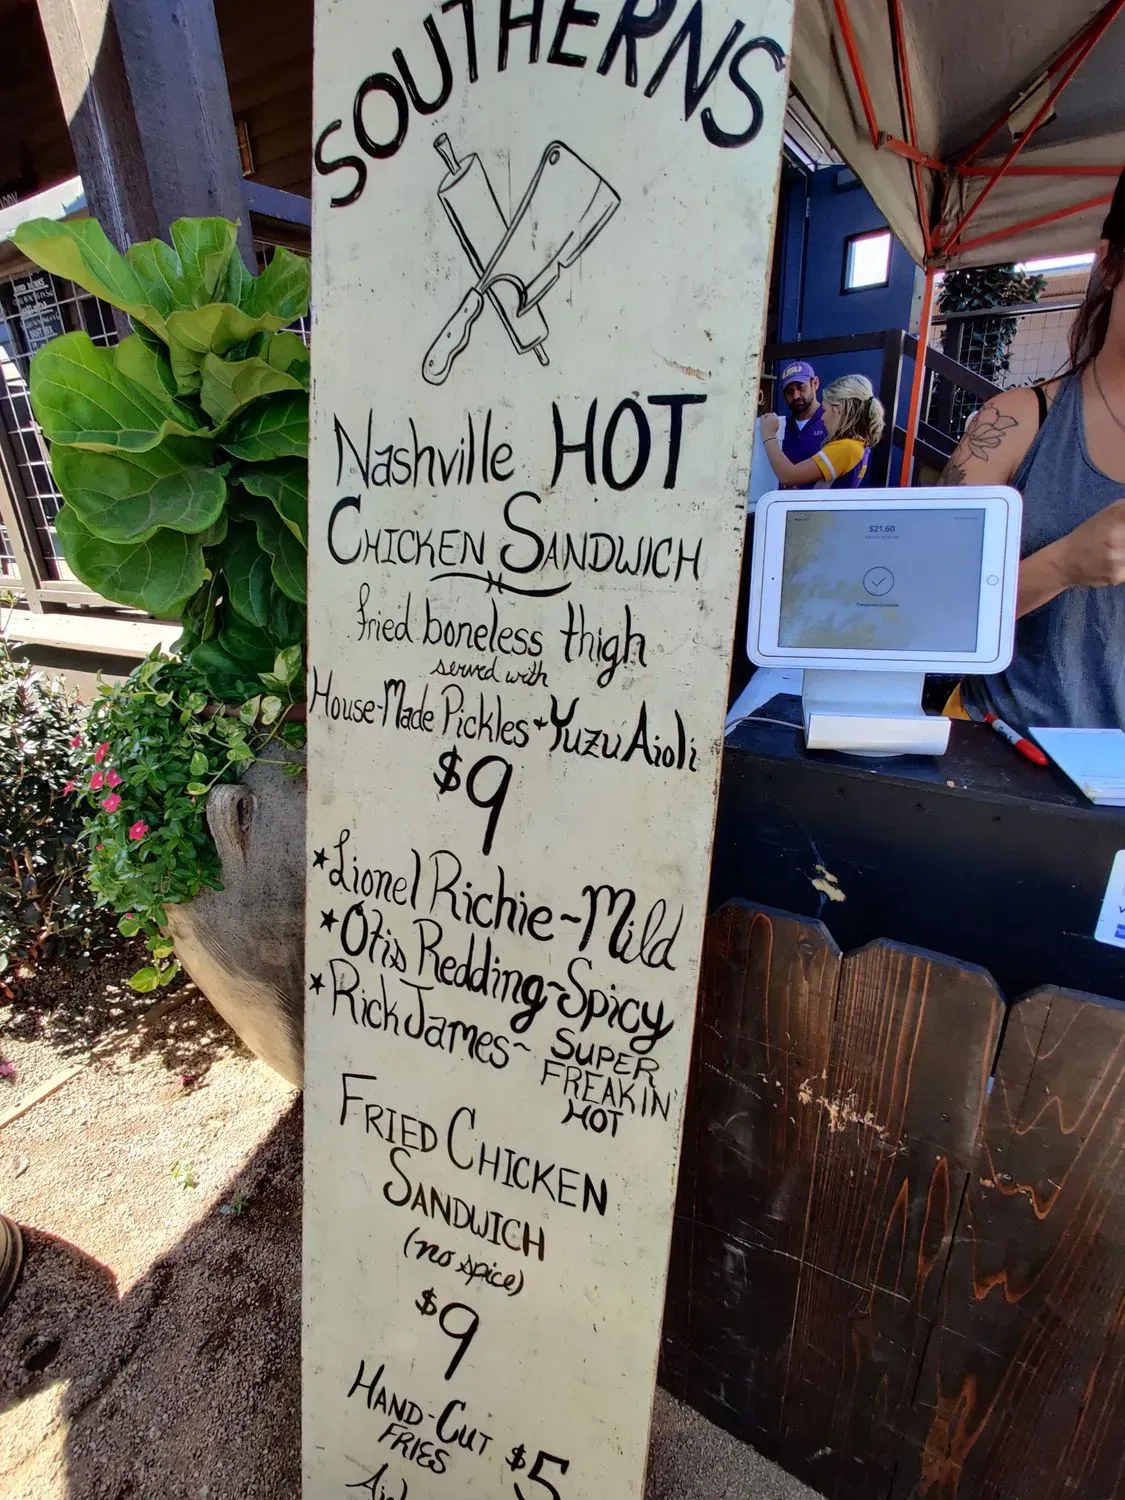 SOUTHERNS
Nashville HOT
CHICKEN SANDWICH
fried boneless thigh
served with
House-Made Pickles + Yuzu Aioli
$9
*Lionel Richie ~ Mild
*Otis Redding ~ Spicy
*Rick James ~ SUPER
FREAKIN'
HOT
FRIED CHICKEN
SANDWICH
(no spice)
$9
HAND-CUT
FRIES
$5
$21.60